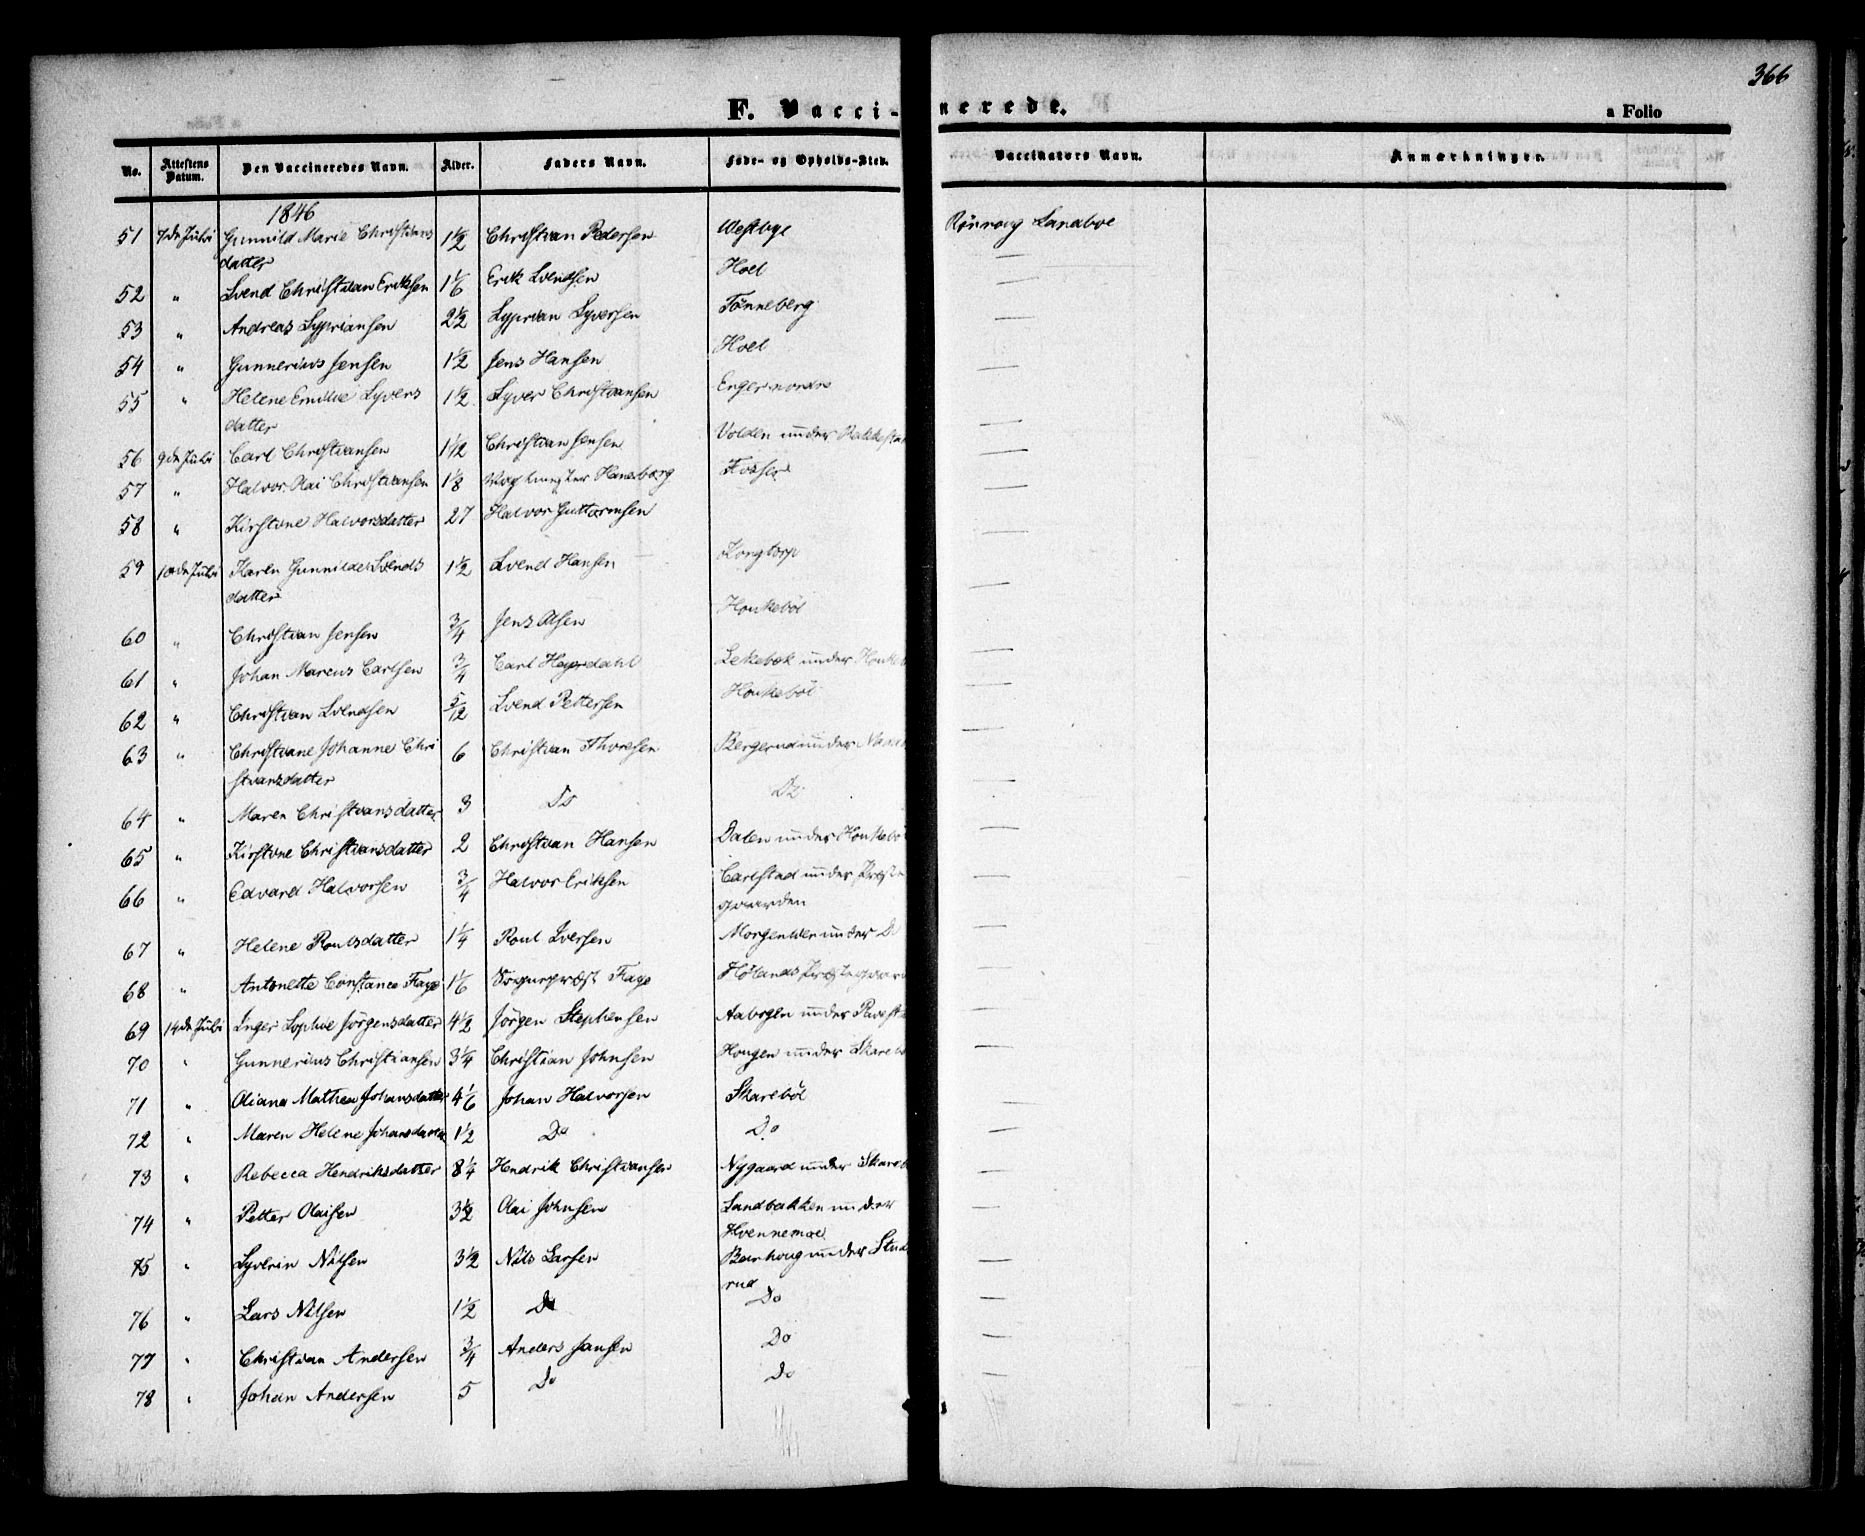 366
F. Vaccinerede.
a Folio
No. Attestens Datum. Den Vaccineredes Navn. Alder. Faders Navn. Føde- og Opholds-Sted. Vaccinators Navn. Anmærkninger.
1846
51 7de Juli Gunnild Marie Christians 1 1/2 Christian Pedersen Westbye Rønnoug Sandboe
datter
52 " Svend Christian Eriksen 1 1/6 Erik Svendsen Hoel —
53 " Andreas Sypriansen 2 1/2 Syprian Syversen Tønneberg —
54 " Gunnerius Jensen 1 1/2 Jens Hansen Hoel —
55 " Helene Emilie Syvers 1 1/2 Syver Christiansen Enger nordre —
datter
56 9de Juli Carl Christiansen 1 1/2 Christian Jensen Volden under —
57 " Halvor Olai Christiansen 1 1/8 Hansborg Fosser —
58 " Kirstine Halvorsdatter 27 Halvor Guttormsen —
59 10de Juli Karen Gunnilde Svends 1 1/2 Svend Hansen Kongtorp —
datter
60 " Christian Jensen 3/4 Jens Olsen Honkebøl —
61 " Johan Marcus Carlsen 3/4 Carl under —
62 " Christian Svendsen 5/12 Svend Pettersen Honkebøl —
63 " Christiane Johanne Chri 6 Christian Thoresen Bergerud under —
stiansdatter
64 " Maren Christiansdatter 3 Do Do —
65 " Kirstine Christiansdatter 2 Christian Hansen Dalen under Honkebøl —
66 " Edvard Halvorsen 3/4 Halvor Eriksen Carlstad under Præste —
gaarden
67 " Helene Poulsdatter 1 1/4 Poul Iversen under Do —
68 " Antonette Constance Faye 1 1/6 Sognepræst Faye Hølands Præstegaard —
69 14de Juli Inger Sophie Jörgensdatter 4 1/2 Jörgen Stephensen Aabogen under —
70 " Gunnerius Christiansen 3 1/4 Christian Johnsen Hougen under —
71 " Oliana Mathea Johansdatter 4 1/6 Johan Halvorsen Skarebøl —
72 " Maren Helene Johansdatter 1 1/2 Do Do —
73 " Rebecca Hendriksdatter 8 1/4 Hendrik Christiansen Nygaard under —
74 " Petter Olaisen 3 1/2 Olai Johnsen Sandbakken under
Hvennemoe
75 " Syverin Nilsen 3 1/2 Nils Larsen under Stud —
rud
76 " Lars Nilsen 1 1/2 Do Do —
77 " Christian Andersen 3/4 Anders Jansen Do —
78 " Johan Andersen 5 Do Do —